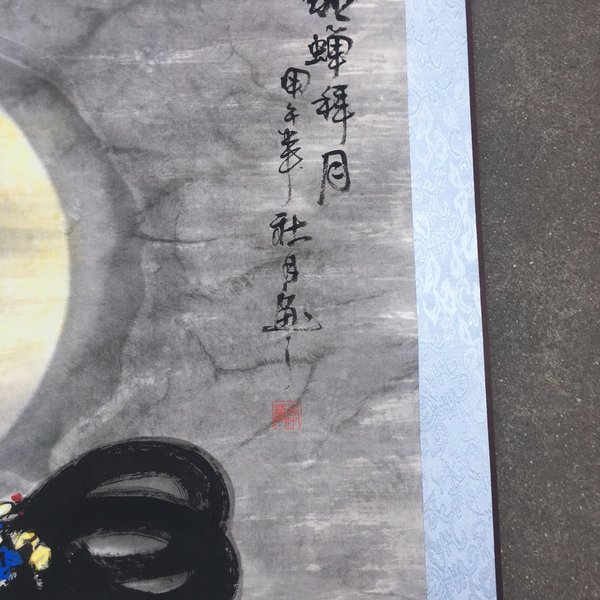 貂蝉拜月
甲午年秋月画